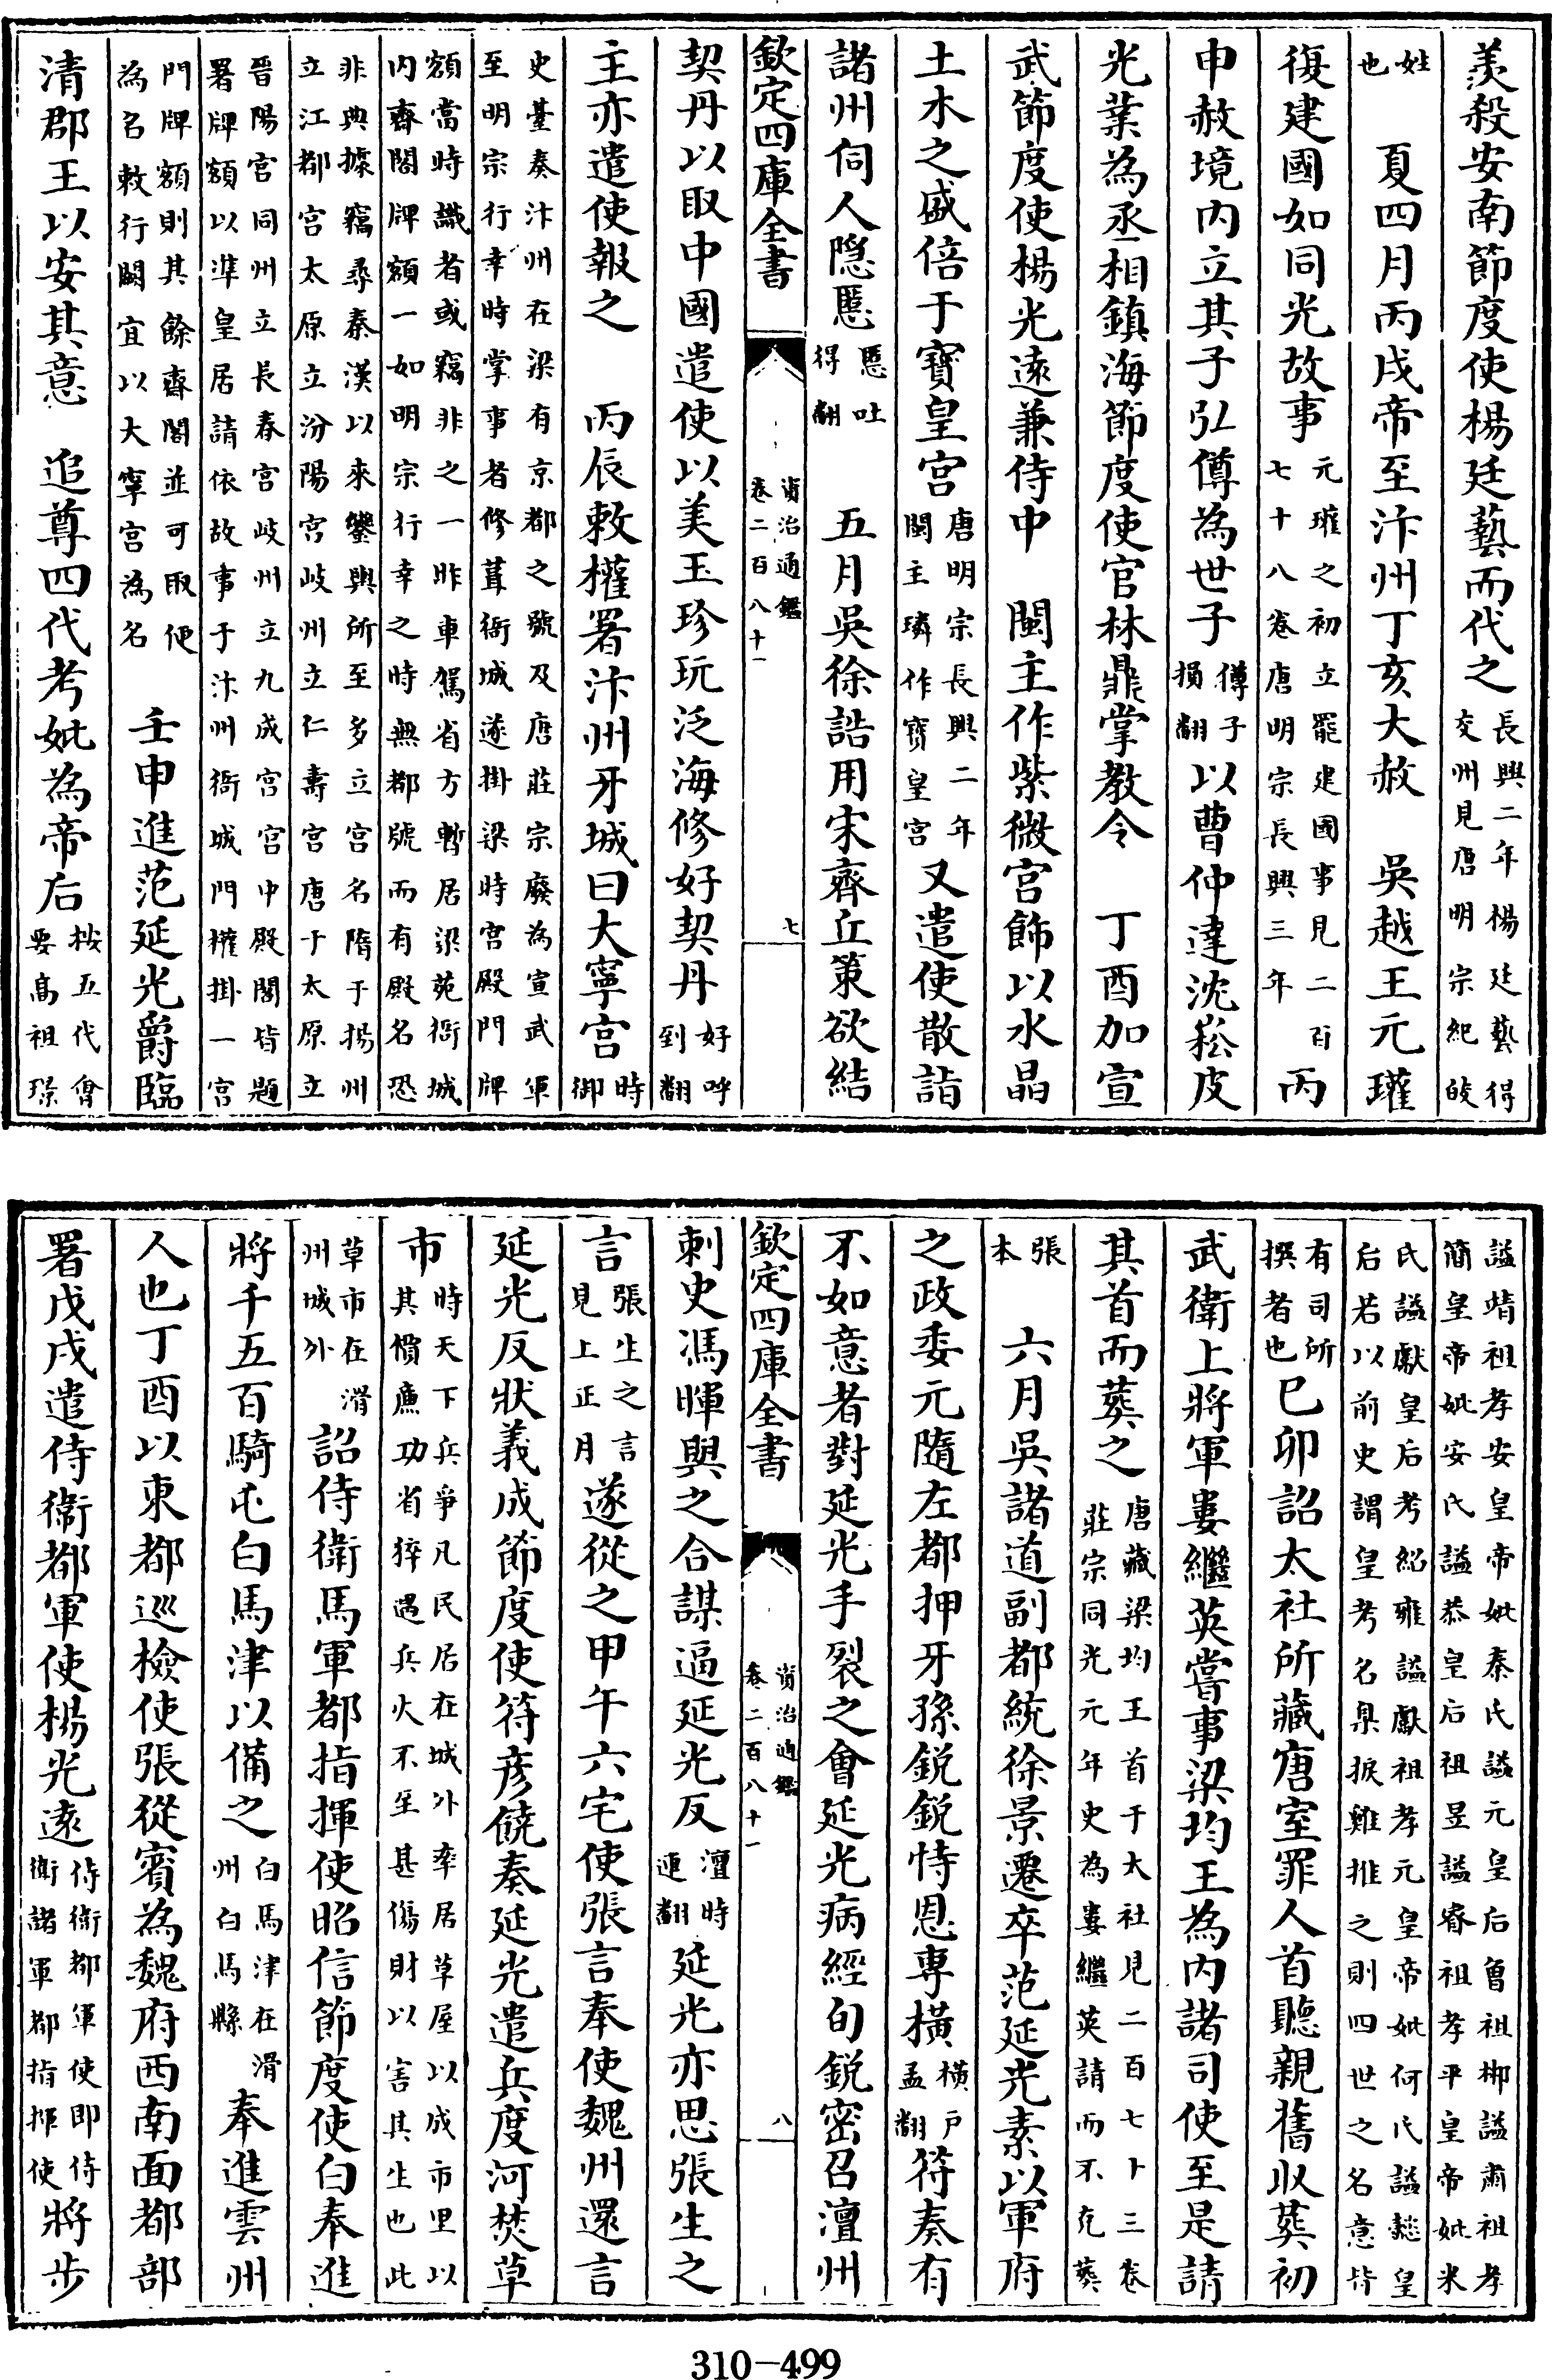 羨殺安南節度使楊廷藝而代之長興二年楊廷藝得交州見唐明宗紀皎
姓也　夏四月丙戌帝至汴州丁亥大赦　吳越王元瓘
復建國如同光故事元瓘之初立罷建國事見二百七十八卷唐明宗長興三年　丙
申赦境内立其子弘僔為世子僔子損翻以曹仲達沈崧皮
光業為丞相鎮海節度使官林鼎掌教令　丁酉加宣
武節度使楊光遠兼侍中　閩主作紫微宫飾以水晶
土木之盛倍于寶皇宫唐明宗長興二年閩主璘作寳皇宫又遣使散詣
諸州伺人隠慝慝吐得翻　五月吳徐誥用宋齊丘策欲結
欽定四庫全書　資治通鑑卷二百八十一　七
契丹以取中國遣使以美玉珍玩泛海修好契丹好呼到翻
主亦遣使報之　丙辰敕權署汴州牙城曰大寧宫時御
史臺奏汴州在梁有京都之號及唐莊宗廢為宣武軍至明宗行幸時掌事者修葺衙城遂掛梁時宫殿門牌
額當時識者或竊非之一昨車駕省方暫居梁苑衙城内齋閣牌額一如明宗行幸之時無都號而有殿名恐
非典據竊尋秦漢以來鑾輿所至多立宫名隋于揚州立江都宫太原立汾陽宫岐州立仁壽宫唐于太原立
晉陽宫同州立長春宫岐州立九成宫宫中殿閣皆題署牌額以凖皇居請依故事于汴州衙城門權掛一宫
門牌額則其餘齋閣並可取便為名敕行闕宜以大寧宫為名　壬申進范延光爵臨
清郡王以安其意　追尊四代考妣為帝后按五代會要高祖璟
諡靖祖孝安皇帝妣秦氏諡元皇后曾祖郴諡肅祖孝簡皇帝妣安氏諡恭皇后祖昱諡睿祖孝平皇帝妣米
氏諡獻皇后考紹雍諡獻祖孝元皇帝妣何氏諡懿皇后若以前史謂皇考名臬捩雞推之則四世之名意皆
有司所撰者也己卯詔太社所藏唐室罪人首聽親舊收葬初
武衛上將軍婁繼英嘗事梁均王為内諸司使至是請
其首而葬之唐藏梁均王首于太社見二百七十三卷莊宗同光元年史為婁繼英請而不克葬
張本　六月吳諸道副都統徐景遷卒范延光素以軍府
之政委元隨左都押牙孫銳銳恃恩專橫橫戸孟翻符奏有
不如意者對延光手裂之會延光病經旬銳密召澶州
欽定四庫全書　資治通鑑卷二百八十一　八
刺史馮暉與之合謀逼延光反澶時連翻延光亦思張生之
言張生之言見上正月遂從之甲午六宅使張言奉使魏州還言
延光反狀義成節度使符彦饒奏延光遣兵度河焚草
市時天下兵爭凡民居在城外率居草屋以成市里以其慣廉功省猝遇兵火不至甚傷財以害其生也此
草市在滑州城外詔侍衛馬軍都指揮使昭信節度使白奉進
將千五百騎屯白馬津以備之白馬津在滑州白馬縣奉進雲州
人也丁酉以東都巡檢使張從賓為魏府西南面都部
署戊戌遣侍衛都軍使楊光遠侍衛都軍使即侍衛諸軍都指揮使將步
310-499